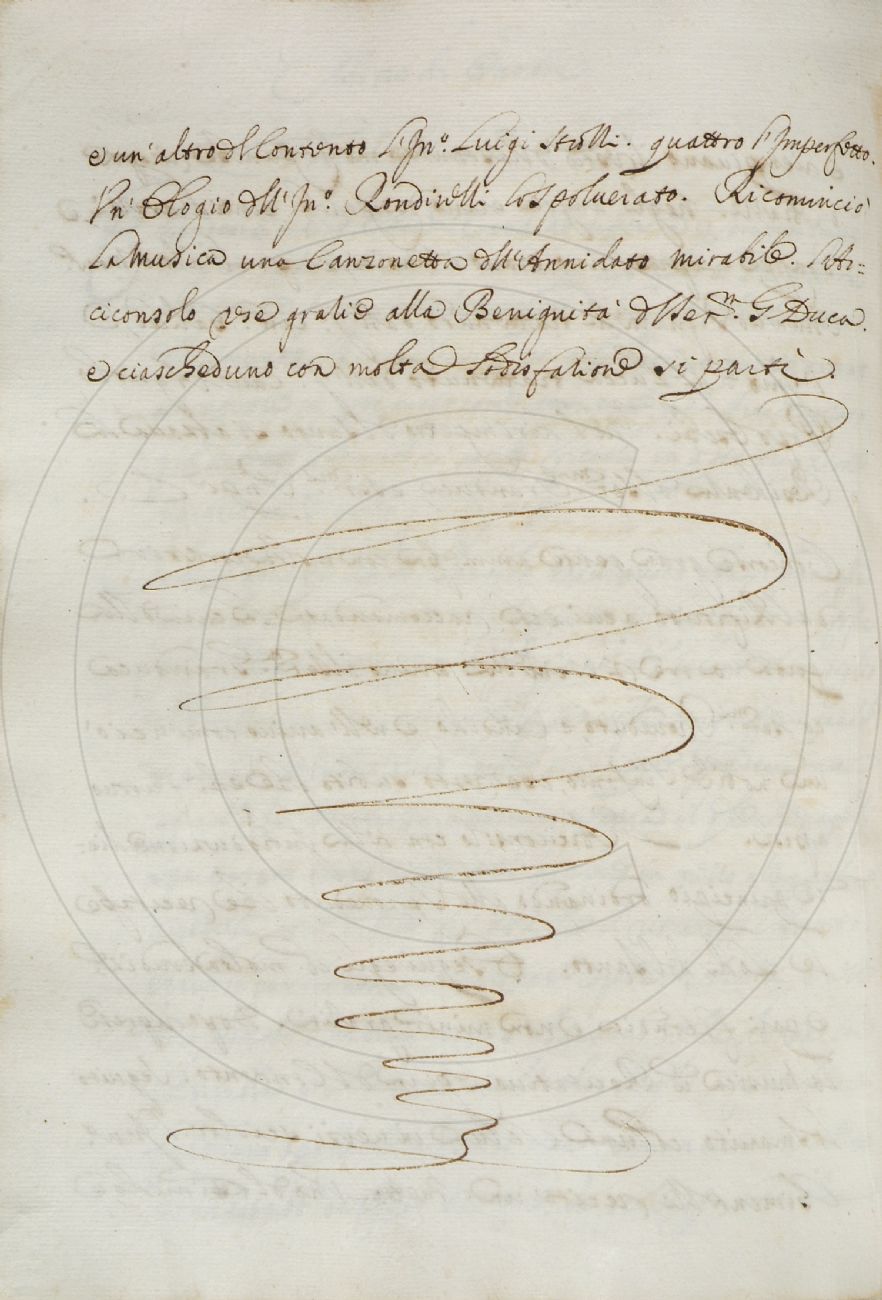 e un' altro del Contento l'Inº. Luigi Strolli. quattro l'Imperfetto.
Un' Elogio dell'Inº. Rondinelli lo Spoluerato. Ricominciò
la musica una Canzonetta dell'Annidato mirabile. l'Ar=
ciconsolo rese gratie alla Benignità del Ser.ᵐ G Duca.
e ciascheduno con molta Sodisfatione si partì.